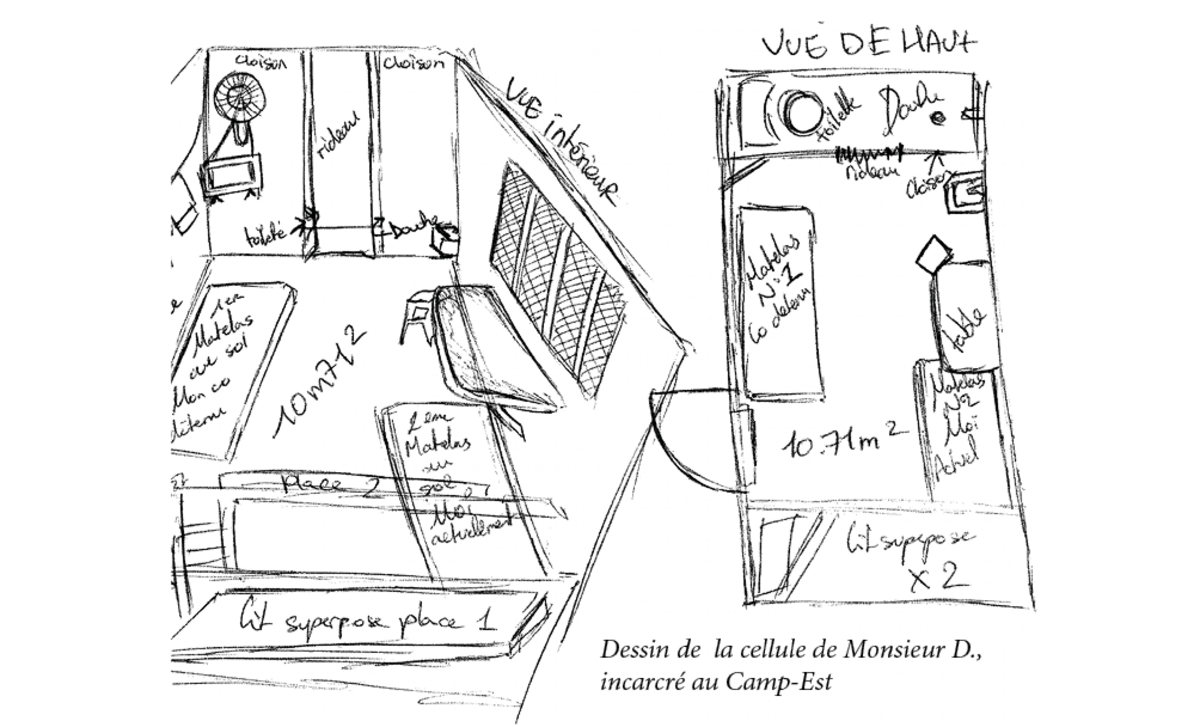 VUE DE HAUT
cloison
cloison
VUE intérieur
rideau
toilette
Douche
rideau
cloison
toileté
Douche
1er
Matelas
au sol
Mon co
détenu
10m71²
2eme
Matelas
au
sol
Moi
actuellement
place 2
Lit superpose place 1
Matelas
N°1
Co detenu
table
Matelas
N°2
Moi
Actuel
10.71m²
Lit superpose
x 2
Dessin de la cellule de Monsieur D.,
incarcré au Camp-Est